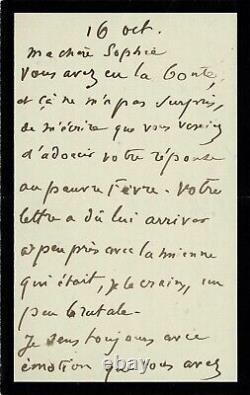 16 oct.
ma chère Sophie
Vous avez eu la bonté,
et çà ne m'a pas surpris,
de m'écrire que vous veniez
d'adoucir votre réponse
au pauvre Fèvre. Votre
lettre a dû lui arriver
à peu près avec la mienne
qui était, je le crains, un
peu brutale.
Je sens toujours avec
émotion que vous avez